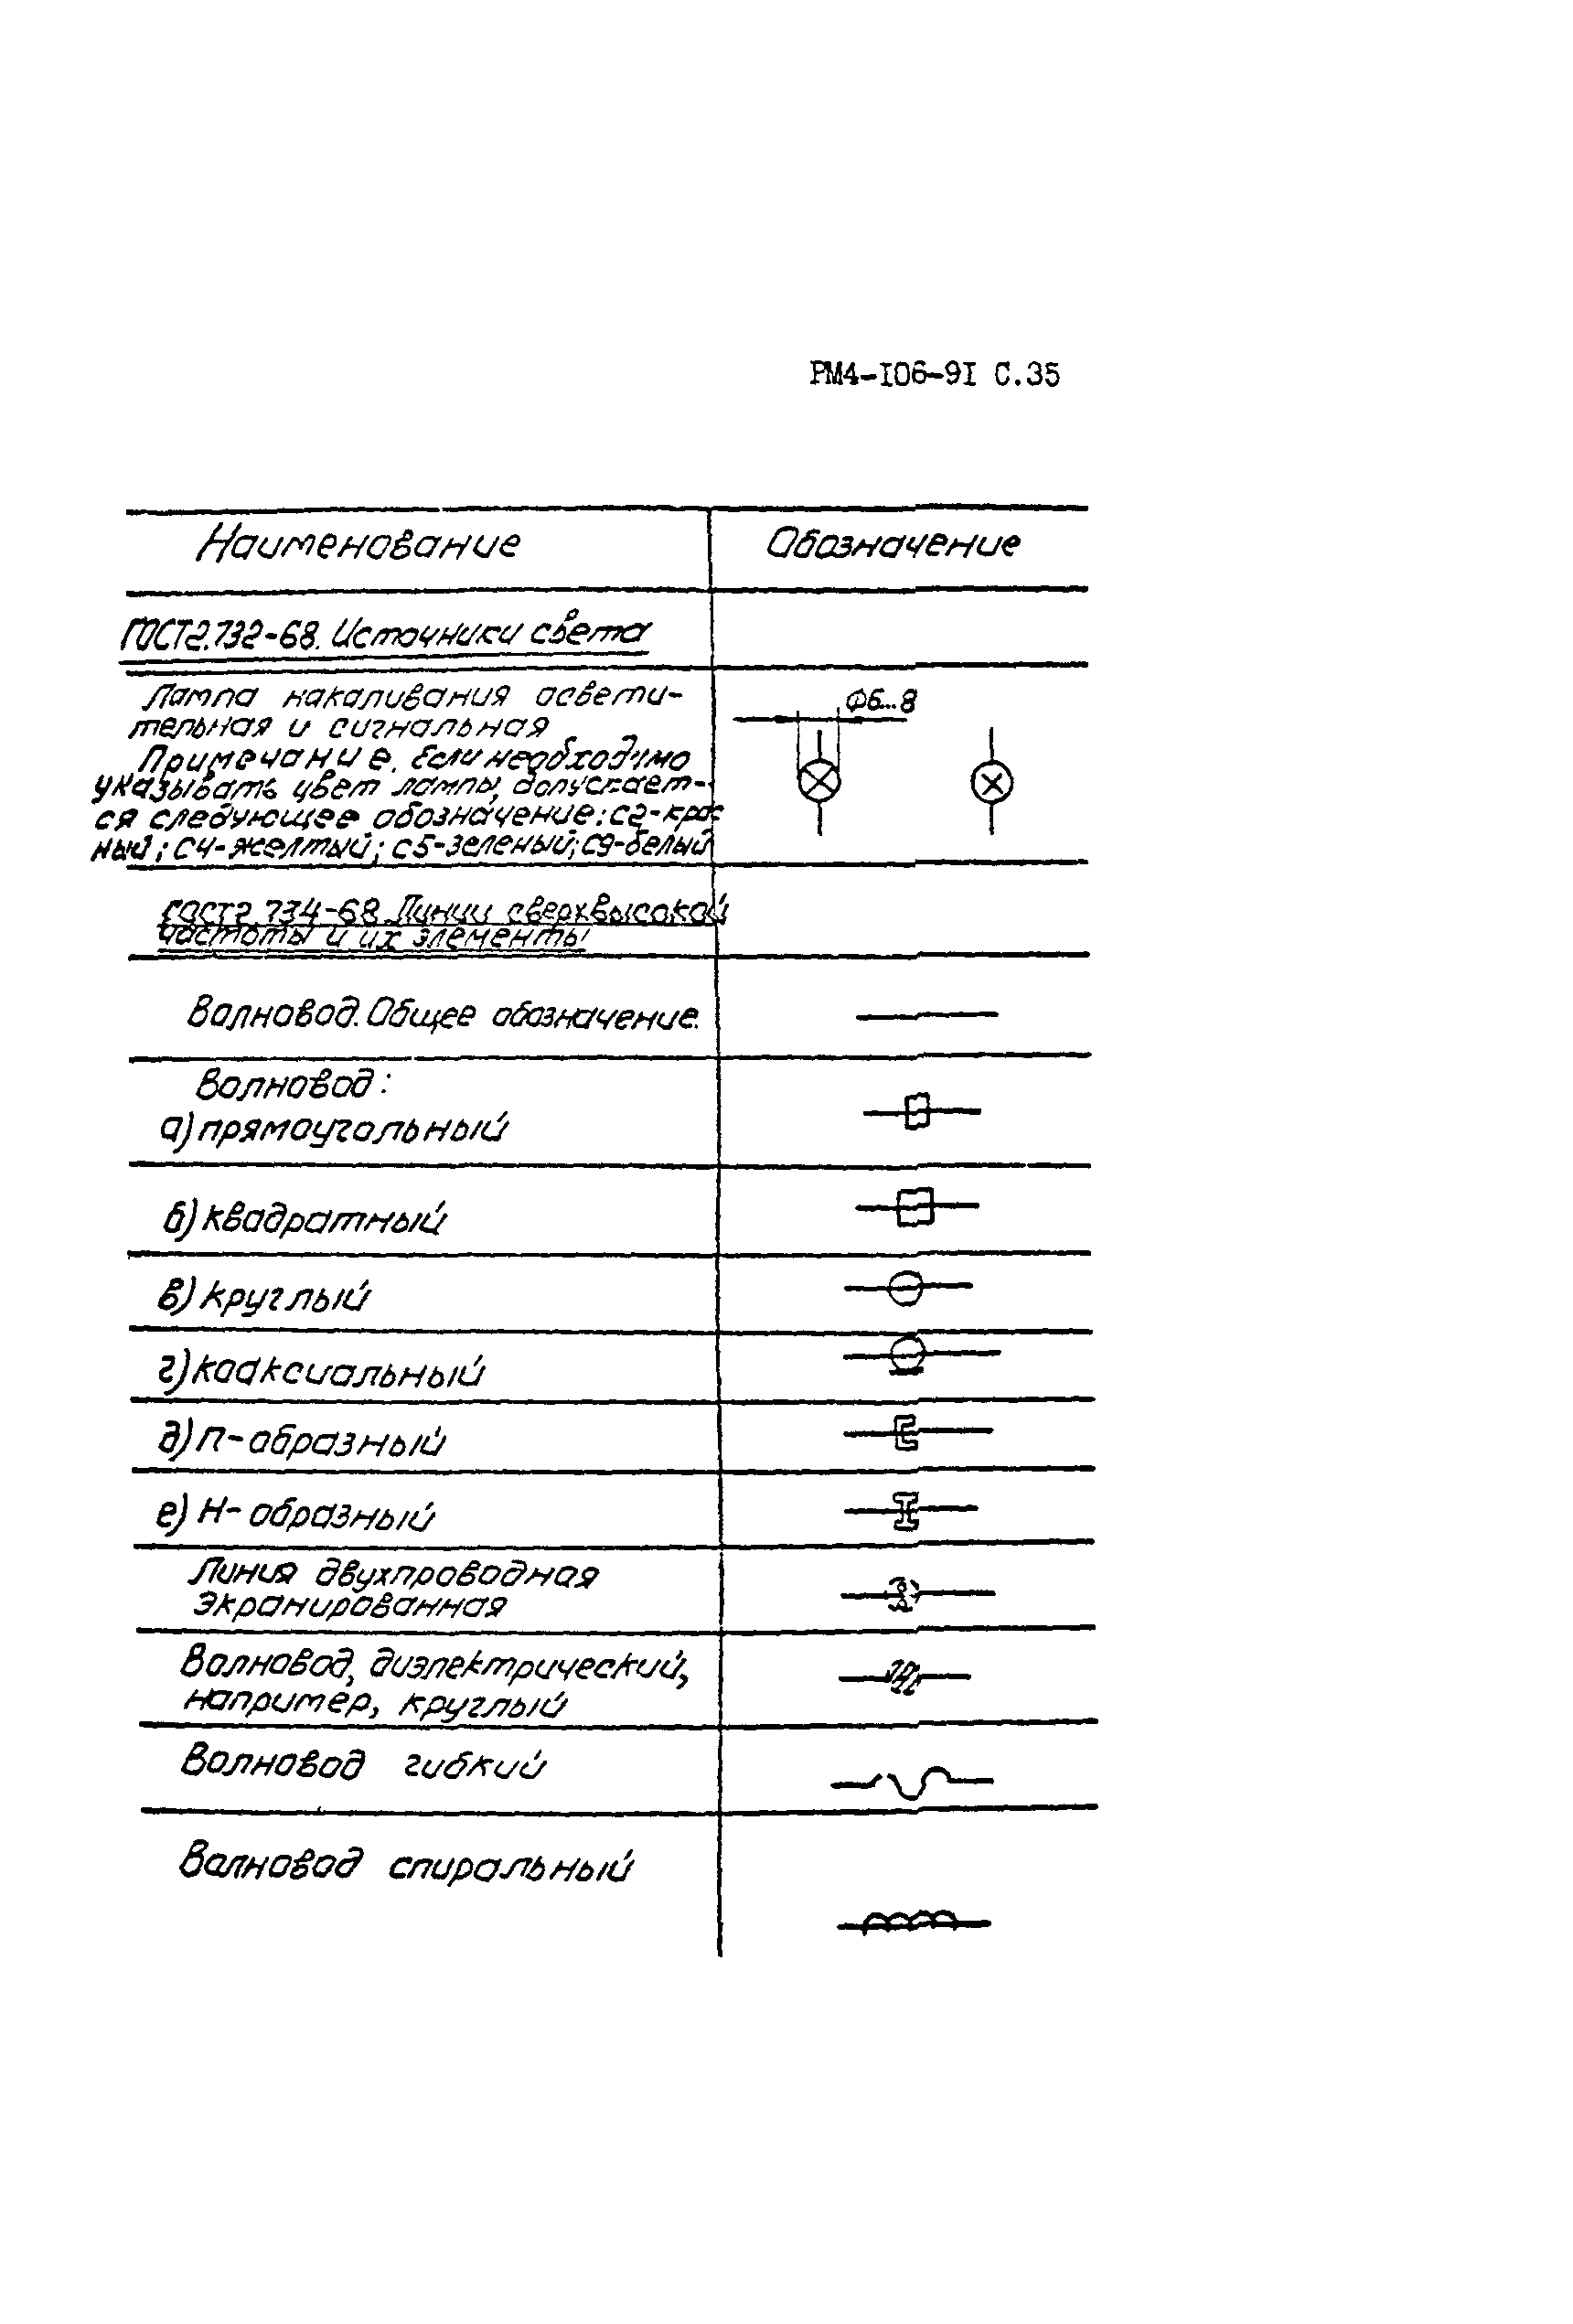 РМ4-I06-9I С.35
Наименование
Обозначение
ГОСТ2.732-68. Источники света
Лампа накаливания освети-
тельная и сигнальная
Примечание. Если необходимо
указывать цвет лампы, допускает-
ся следующее обозначение: С2-крас-
ный; С4-желтый; С5-зеленый; С9-белый
Ф6...8
ГОСТ2.734-68. Линии сверхвысокой
частоты и их элементы
Волновод. Общее обозначение.
Волновод:
а) прямоугольный
б) квадратный
в) круглый
г) коаксиальный
д) П-образный
е) Н-образный
Линия двухпроводная
экранированная
Волновод, диэлектрический,
например, круглый
Волновод гибкий
Волновод спиральный